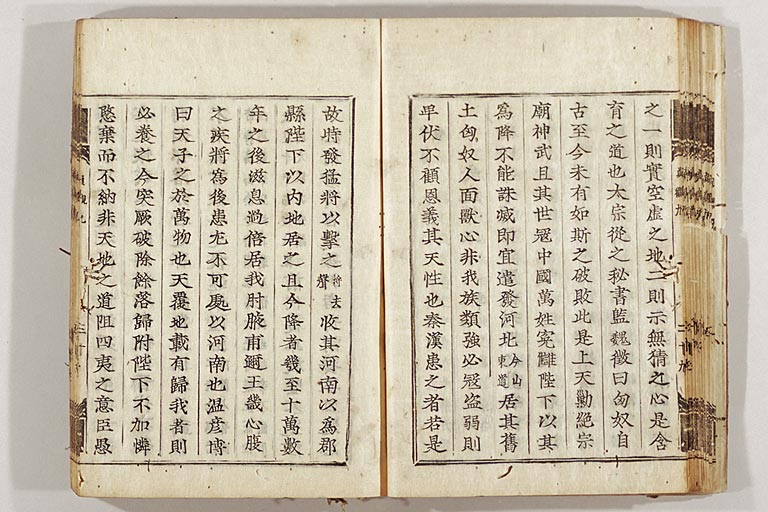 之一則實空虛之地二則示無猜之心是含
育之道也太宗從之秘書監魏徵曰匈奴自
古至今未有如斯之破敗此是上天勦絶宗
廟神武且其世冦中國萬姓寃讎陛下以其
爲降不能誅滅即宜遣發河北今山東道居其舊
土匈奴人面獸心非我族類強必冦盗弱則
卑伏不顧恩義其天性也秦漢患之者若是
故時發猛將以擊之將去聲收其河南以爲郡
縣陛下以内地居之且今降者幾至十萬數
年之後滋息過倍居我肘腋甫邇王畿心腹
之疾將爲後患尤不可處以河南也温彦博
曰天子之於萬物也天覆地載有歸我者則
必養之今突厥破除餘落歸附陛下不加憐
愍棄而不納非天地之道阻四夷之意臣愚